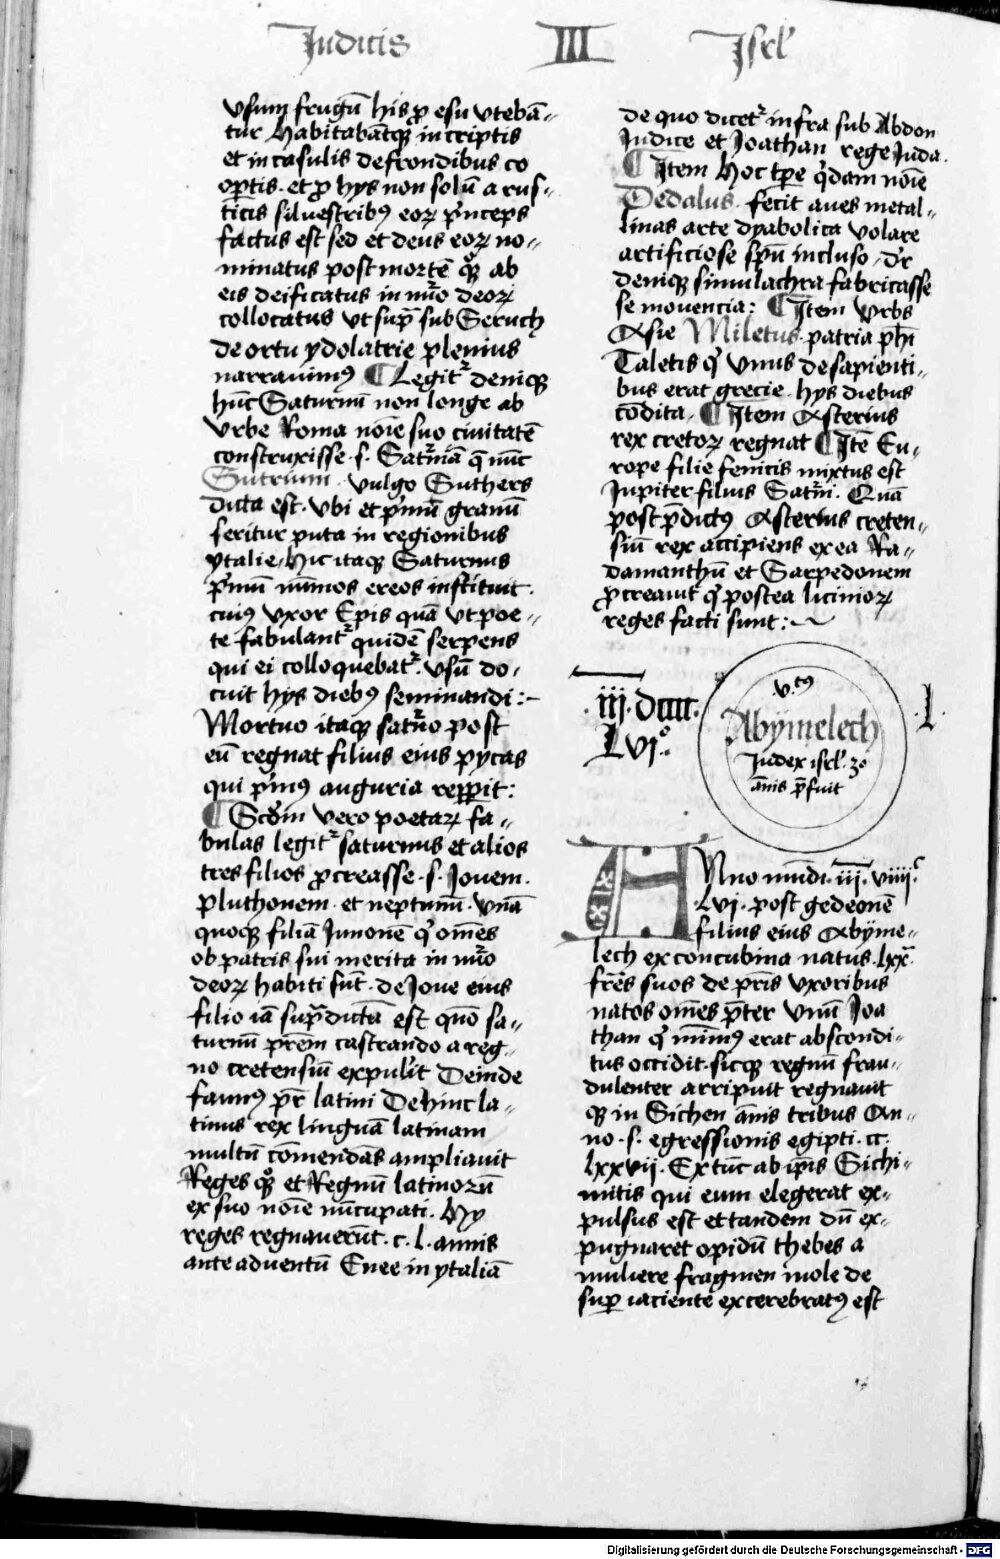 Iudicis III Isrl'
vsum frugū his ꝓ esu vtebā-
tur habitabātqꝫ in criptis
et in casulis de frondibus co
optis. et ꝓ hys non solū a rus-
ticis siluestribꝰ eoꝝ pͥnceps
factus est sed et deus eoꝝ no-
minatus post mortē qꝫ ab
eis deificatus in nūo deoꝝ
collocatus vt supͣ sub Seruch
de ortu ydolatrie plenius
narrauimꝰ ¶ Legitͬ deniqꝫ
hūc Saturnū non longe ab
vrbe Roma noīe suo ciuitatē
construxisse .s. Satͬniā q̄ nūc
Sutrium. vulgo Suthers
dicta est. vbi et pͥmū granū
seritur puta in regionibus
ytalie. hic itaqꝫ Saturnus
pͥmū nūmos ereos instituit.
cuiꝰ vxor Epis quā vt poe-
te fabulantͬ quidē serpens
qui ei colloquebatͬ. vsū do-
cuit hys diebꝰ seminandi:-
Mortuo itaqꝫ satͬno post
eū regnat filius eius pycas
qui pͥmꝰ auguria repperit:
¶ Scdm vero poetaꝝ fa-
bulas legitͬ saturnus et alios
tres filios ꝓcreasse .s. Iouem.
pluthonem. et neptunū. vnā
quoqꝫ filiā Iunonē qͥ om̄es
ob patris sui merita in nūo
deoꝝ habiti sūt. de Ioue eius
filio iā supͣdictā est quō sa-
turnū pr̄em castrando a reg-
no cretensiū expulit Deinde
faunꝰ pr̄ latini Dehinc la-
tinus rex linguā latinam
multū cōmendās ampliauit
Reges qꝫ et Regnū latinorū
ex suo noīe nūcupati. Hy
reges regnauerūt .c.l. annis
ante aduentū Enee in ytaliā
de quo dicetͬ infra sub Abdon
Iudice et Ioathan rege Iuda.
¶ Item hoc tꝑe qͥdam noīe
Dedalus. fecit aues metal-
linas arte dyabolica volare
artificiose spū incluso. dr̄
deniqꝫ simulachra fabricasse
se mouencia: ¶ Item vrbs
Asie Miletus. patria phi
Taletis qͥ vnus de sapienti-
bus erat grecie. hys diebus
cōdita. ¶ Item Asterius
rex cretoꝝ regnat ¶ Itē Eu-
rope filie fenicis mixtus est
Iupiter filius Satͬni. Quā
post p̄dictꝰ Asterius creten-
siū rex accipiens ex ea Ra-
damanthū et Sarpedonem
ꝓcreauit qͥ postea licinioꝝ
reges facti sunt:
.iii.dcccc.
Lvi.º
v.tꝰ
Abymelech
Iudex isrl'. 3º
ānis p̄fuit
.L
Anno mūdi .iii. viiii.ͨ
Lvi. post gedeonē
filius eius Abyme-
lech ex concubina natus. lxx.
fr̄es suos de pr̄is vxoribus
natos om̄es p̄ter vnū Ioa
than qͥ minimꝰ erat abscondi-
tus occidit. sicqꝫ regnū frau-
dulenter arripuit regnauit
qꝫ in Sichen ānis tribus An-
no .s. egressionis egipti. cc.
lxxvii. Ex tūc ab ip̄is Sichi-
mitis qui eum elegerat ex-
pulsus est et tandem dū ex-
pugnaret opidū thebes a
muliere fragmen mole de
suꝑ iaciente excerebratꝰ est
Digitalisierung gefördert durch die Deutsche Forschungsgemeinschaft - DFG